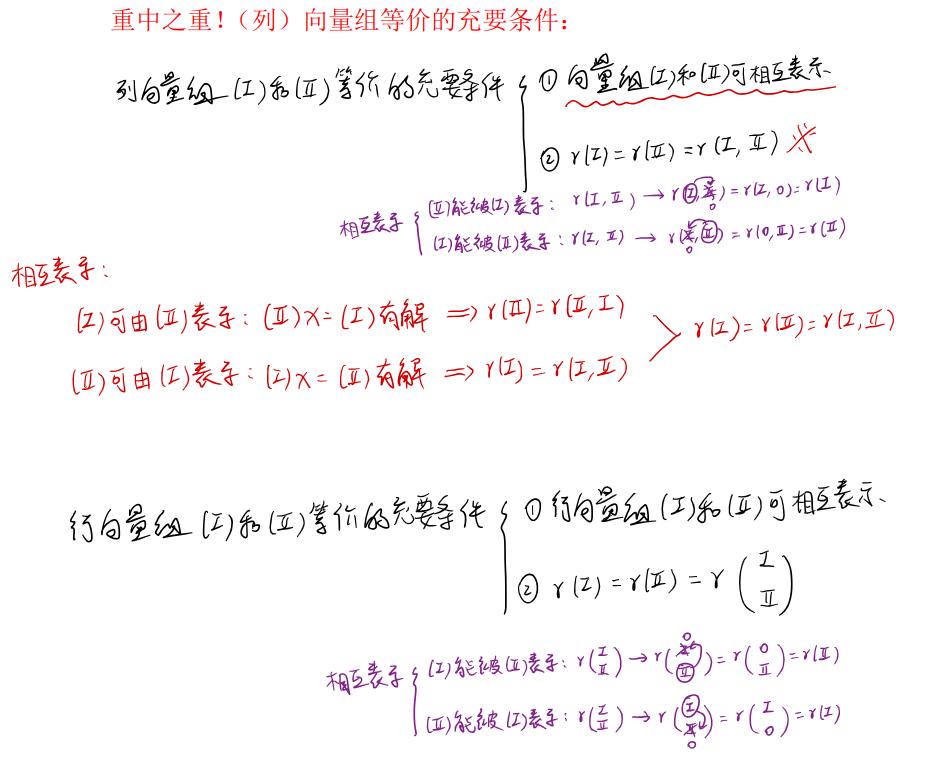 重中之重！（列）向量组等价的充要条件：
列向量组(I)和(II)等价的充要条件 { ① 向量组(I)和(II)可相互表示
② r(I)=r(II)=r(I,II) ※
相互表示 { (II)能被(I)表示：r(I,II)→r(I,II 0)=r(I,0)=r(I)
(I)能被(II)表示：r(I,II)→r(I 0,II)=r(0,II)=r(II)
相互表示：
(I)可由(II)表示：(II)X=(I)有解 ⟹ r(II)=r(II,I)
r(I)=r(II)=r(I,II)
(II)可由(I)表示：(I)X=(II)有解 ⟹ r(I)=r(I,II)
行向量组(I)和(II)等价的充要条件 { ① 行向量组(I)和(II)可相互表示、
② r(I)=r(II)=r(I II)
相互表示 { (I)能被(II)表示：r(I II)→r(0 II)=r(0 II)=r(II)
(II)能被(I)表示：r(I II)→r(I 0)=r(I 0)=r(I)